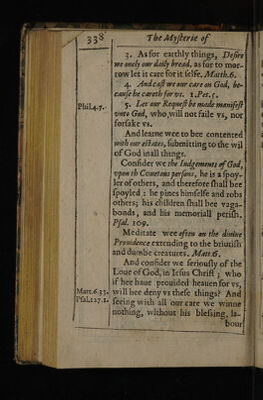 338
The Mysterie of
3. As for earthly things, Desire
we onely our daily bread, as for to mor-
row let it care for it selfe. Matth.6.
4. And cast we our care on God, be-
cause he careth for vs. 1.Pet.5.
Phil.4.7.
5. Let our Request be made manifest
vnto God, who will not faile vs, nor
forsake vs.
And learne wee to bee contented
with our estates, submitting to the wil
of God in all things.
Consider we the Iudgements of God,
vpon th Couetous persons, he is a spoy-
ler of others, and therefore shall bee
spoyled : he pines himselfe and robs
others; his children shall bee vaga-
bonds, and his memoriall perish.
Psal. 109.
Meditate wee often on the diuine
Prouidence extending to the brutish
and dumbe creatures. Matt.6.
And consider we seriously of the
Loue of God, in Iesus Christ ; who
if hee haue prouided heauen for vs,
Matt.6.33.
will hee deny vs these things? And
Psal.127.1.
seeing with all our care we winne
nothing, without his blessing, la-
bour